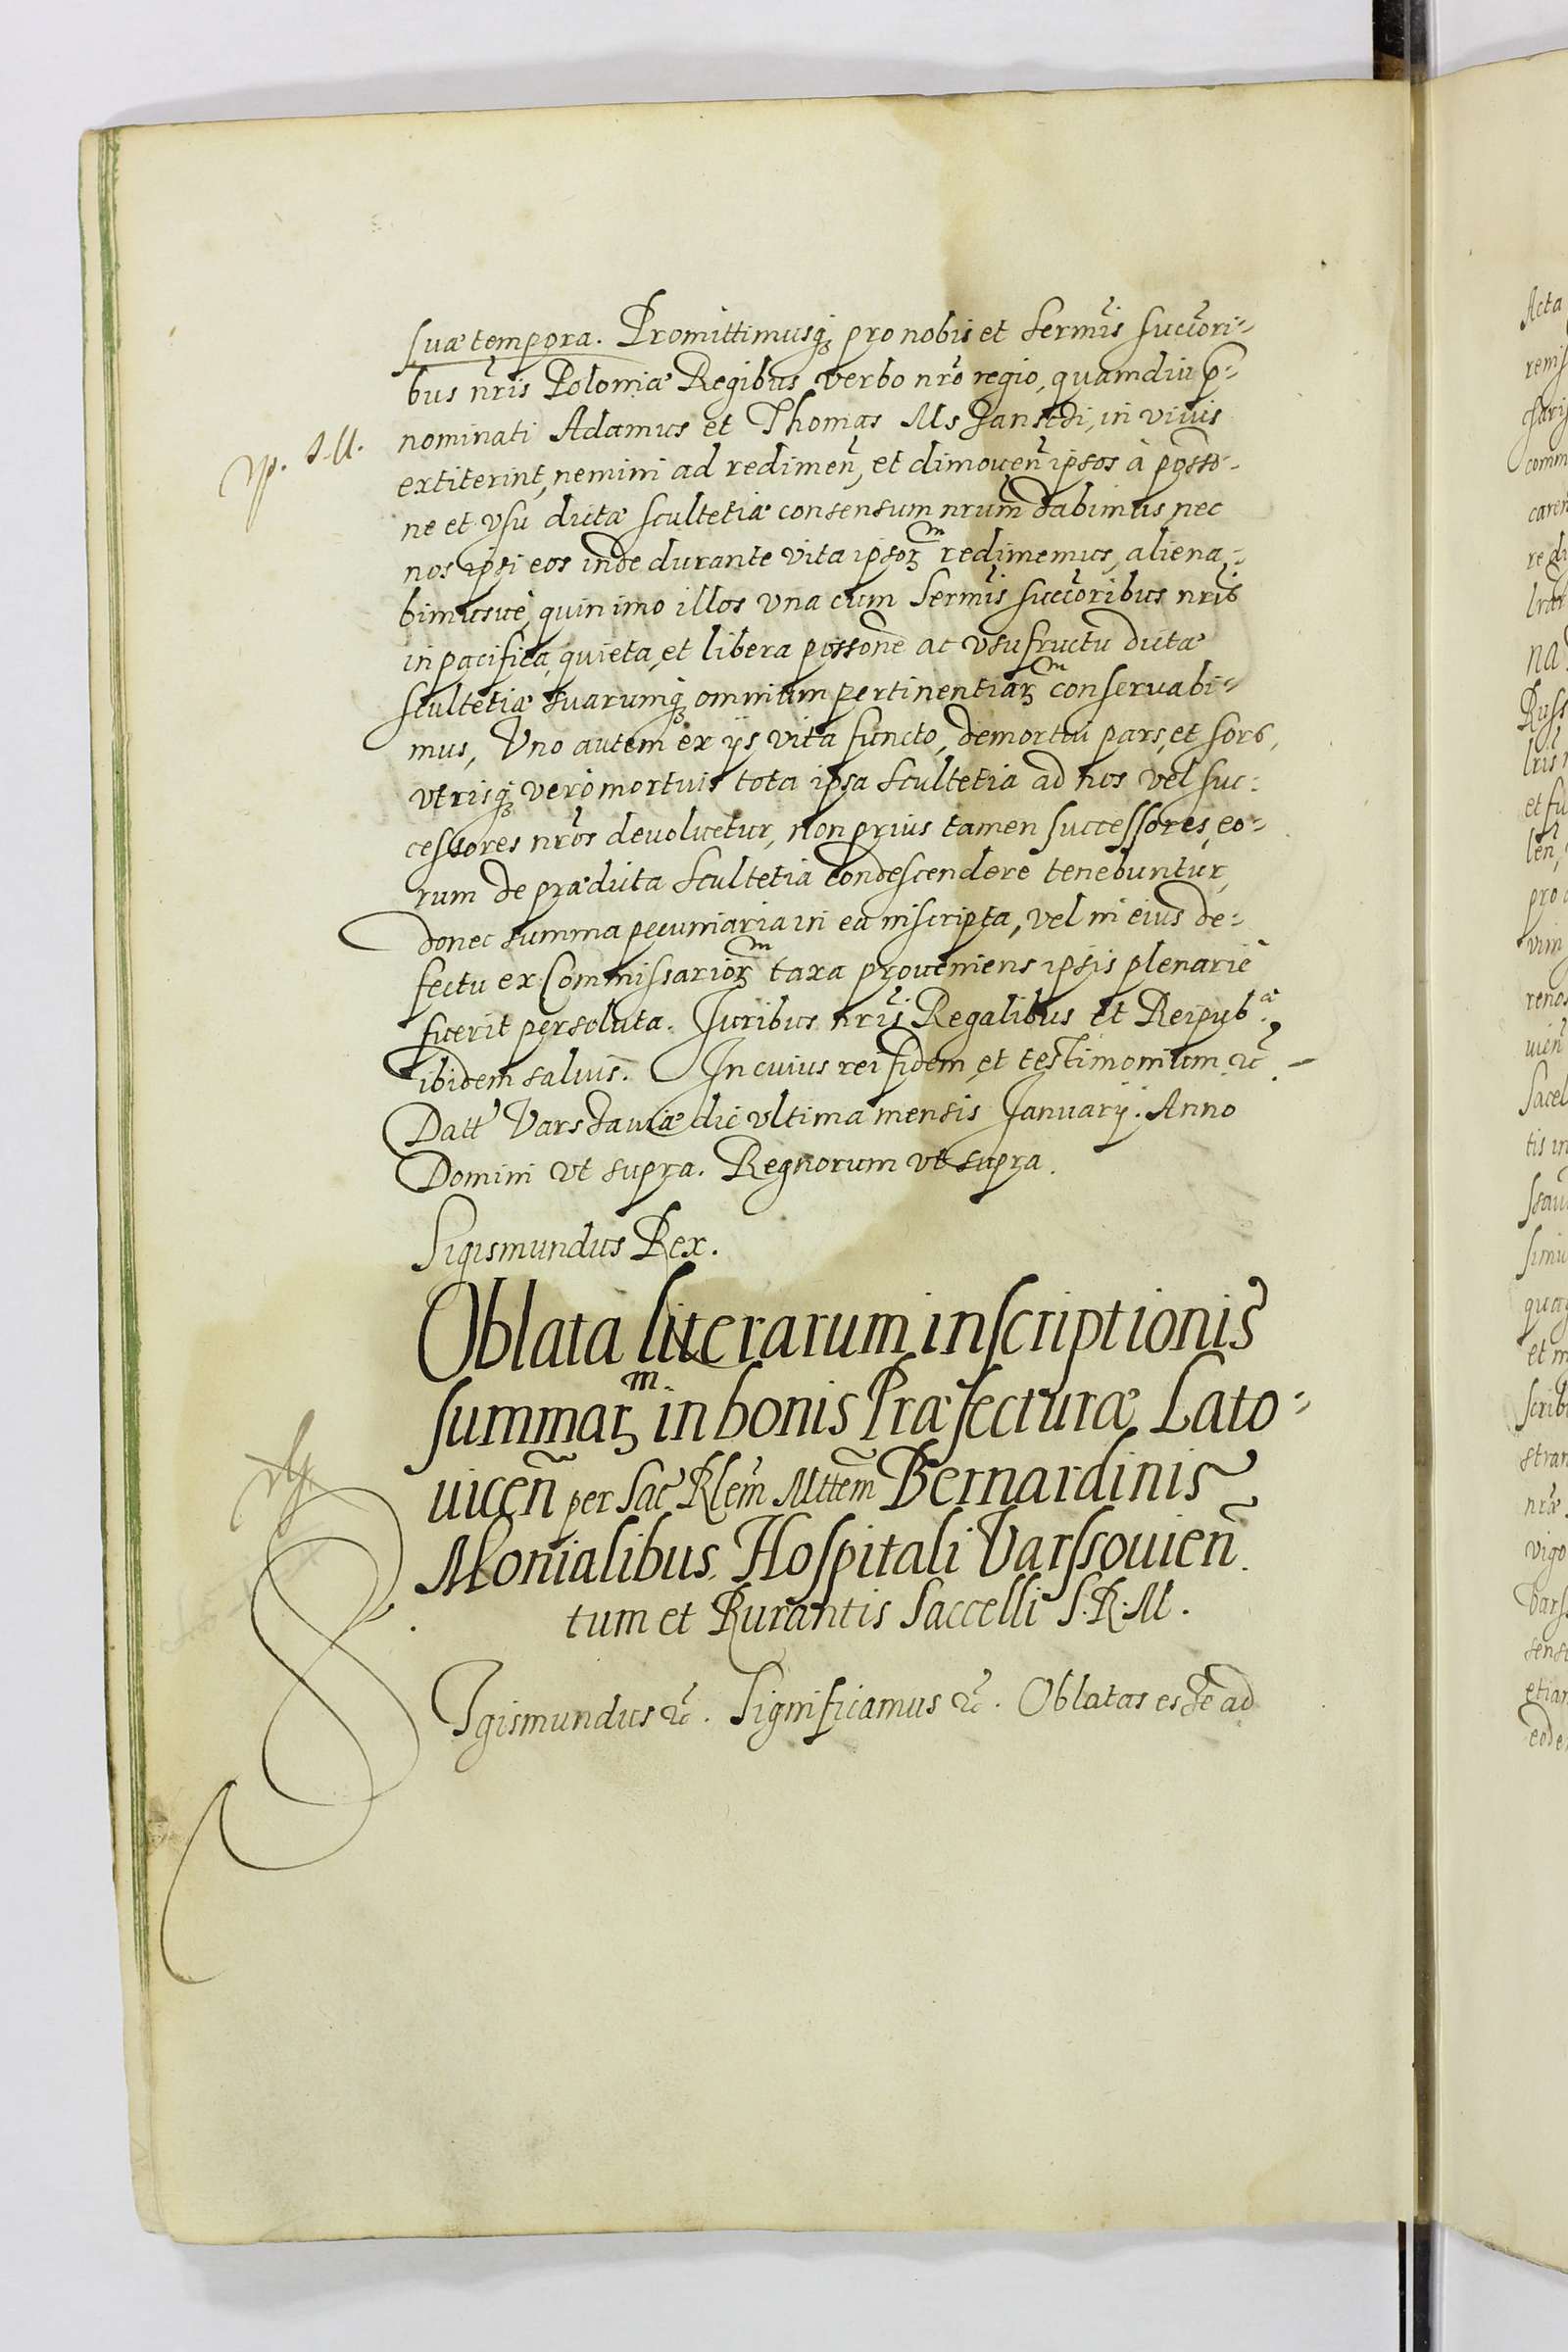 suæ tempora. Promittimusq₃ pro nobis et Serm̃is succ̃ori-
bus nr̃is Poloniæ Regibus verbo nr̃o regio, quamdiu p̃-
nominati Adamus et Thomas Mssanssdi, in viuis
extiterint, nemini ad redimeñ, et dimoueñ ipsos à posso-
ne et vsu dictæ Scultetiæ consensum nrum̃ dabimus, nec
nos ipsi eos inde durante vita ipsoꝝᵐ redimemus, aliena-
bimusuè, quin imo illos vna cum Serm̃is succ̃oribus nr̃is
in pacifica, quieta, et libera possone ac vsufructu dictæ
Scultetiæ suarumq₃ omnium pertinentiaꝝᵐ conseruabi-
mus, Vno autem ex ijs vita functo, demortui pars, et sors,
vtrisq₃ verò mortuis tota ipsa Scultetia ad nos vel suc-
cessores nr̃os deuoluetur, non prius tamen successores, eo-
rum de prædicta Scultetia condescendere tenebuntur,
donec summa pecuniaria in ea inscripta, vel in eius de-
fectu ex Commissarioꝝᵐ taxa proueniens ipsis plenariè
fuerit persoluta. Juribus nr̃is Regalibus et Reipub.ᶜᵃ
ibidem saluis. In cuius rei fidem et testimonium &c̃.
Datt Varssauiæ die vltima mensis Januarij. Anno
Domini vt supra. Regnorum vt supra.
Sigismundus Rex.
Oblata literarum inscriptionis
summaꝝᵐ in bonis Præfecturæ Lato-
uiceñ per Sac̃ Rlem̃ Mttem̃ Bernardinis
Monialibus, Hospitali Varssouieñ.
tum et Rurantis Saccelli S. R. M.
SIgismundus &c̃. Significamus &c̃. Oblatas esse ad